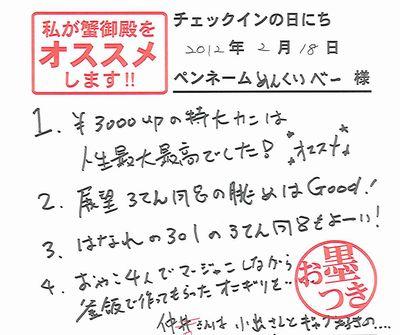 私が蟹御殿を
オススメ
します!!
チェックインの日にち
2012年2月18日
ペンネームめんくいべー 様
1. ¥3000upの特大カニは
人生最大最高でした! オススメ
2. 展望ろてん風呂の眺めはGood!
3. はなれの301のろてん風呂もよーい!
4. おやこ4人でマージャンしながら
釜飯で作ってもらったオニギリを…
お墨
つき
仲居さんは